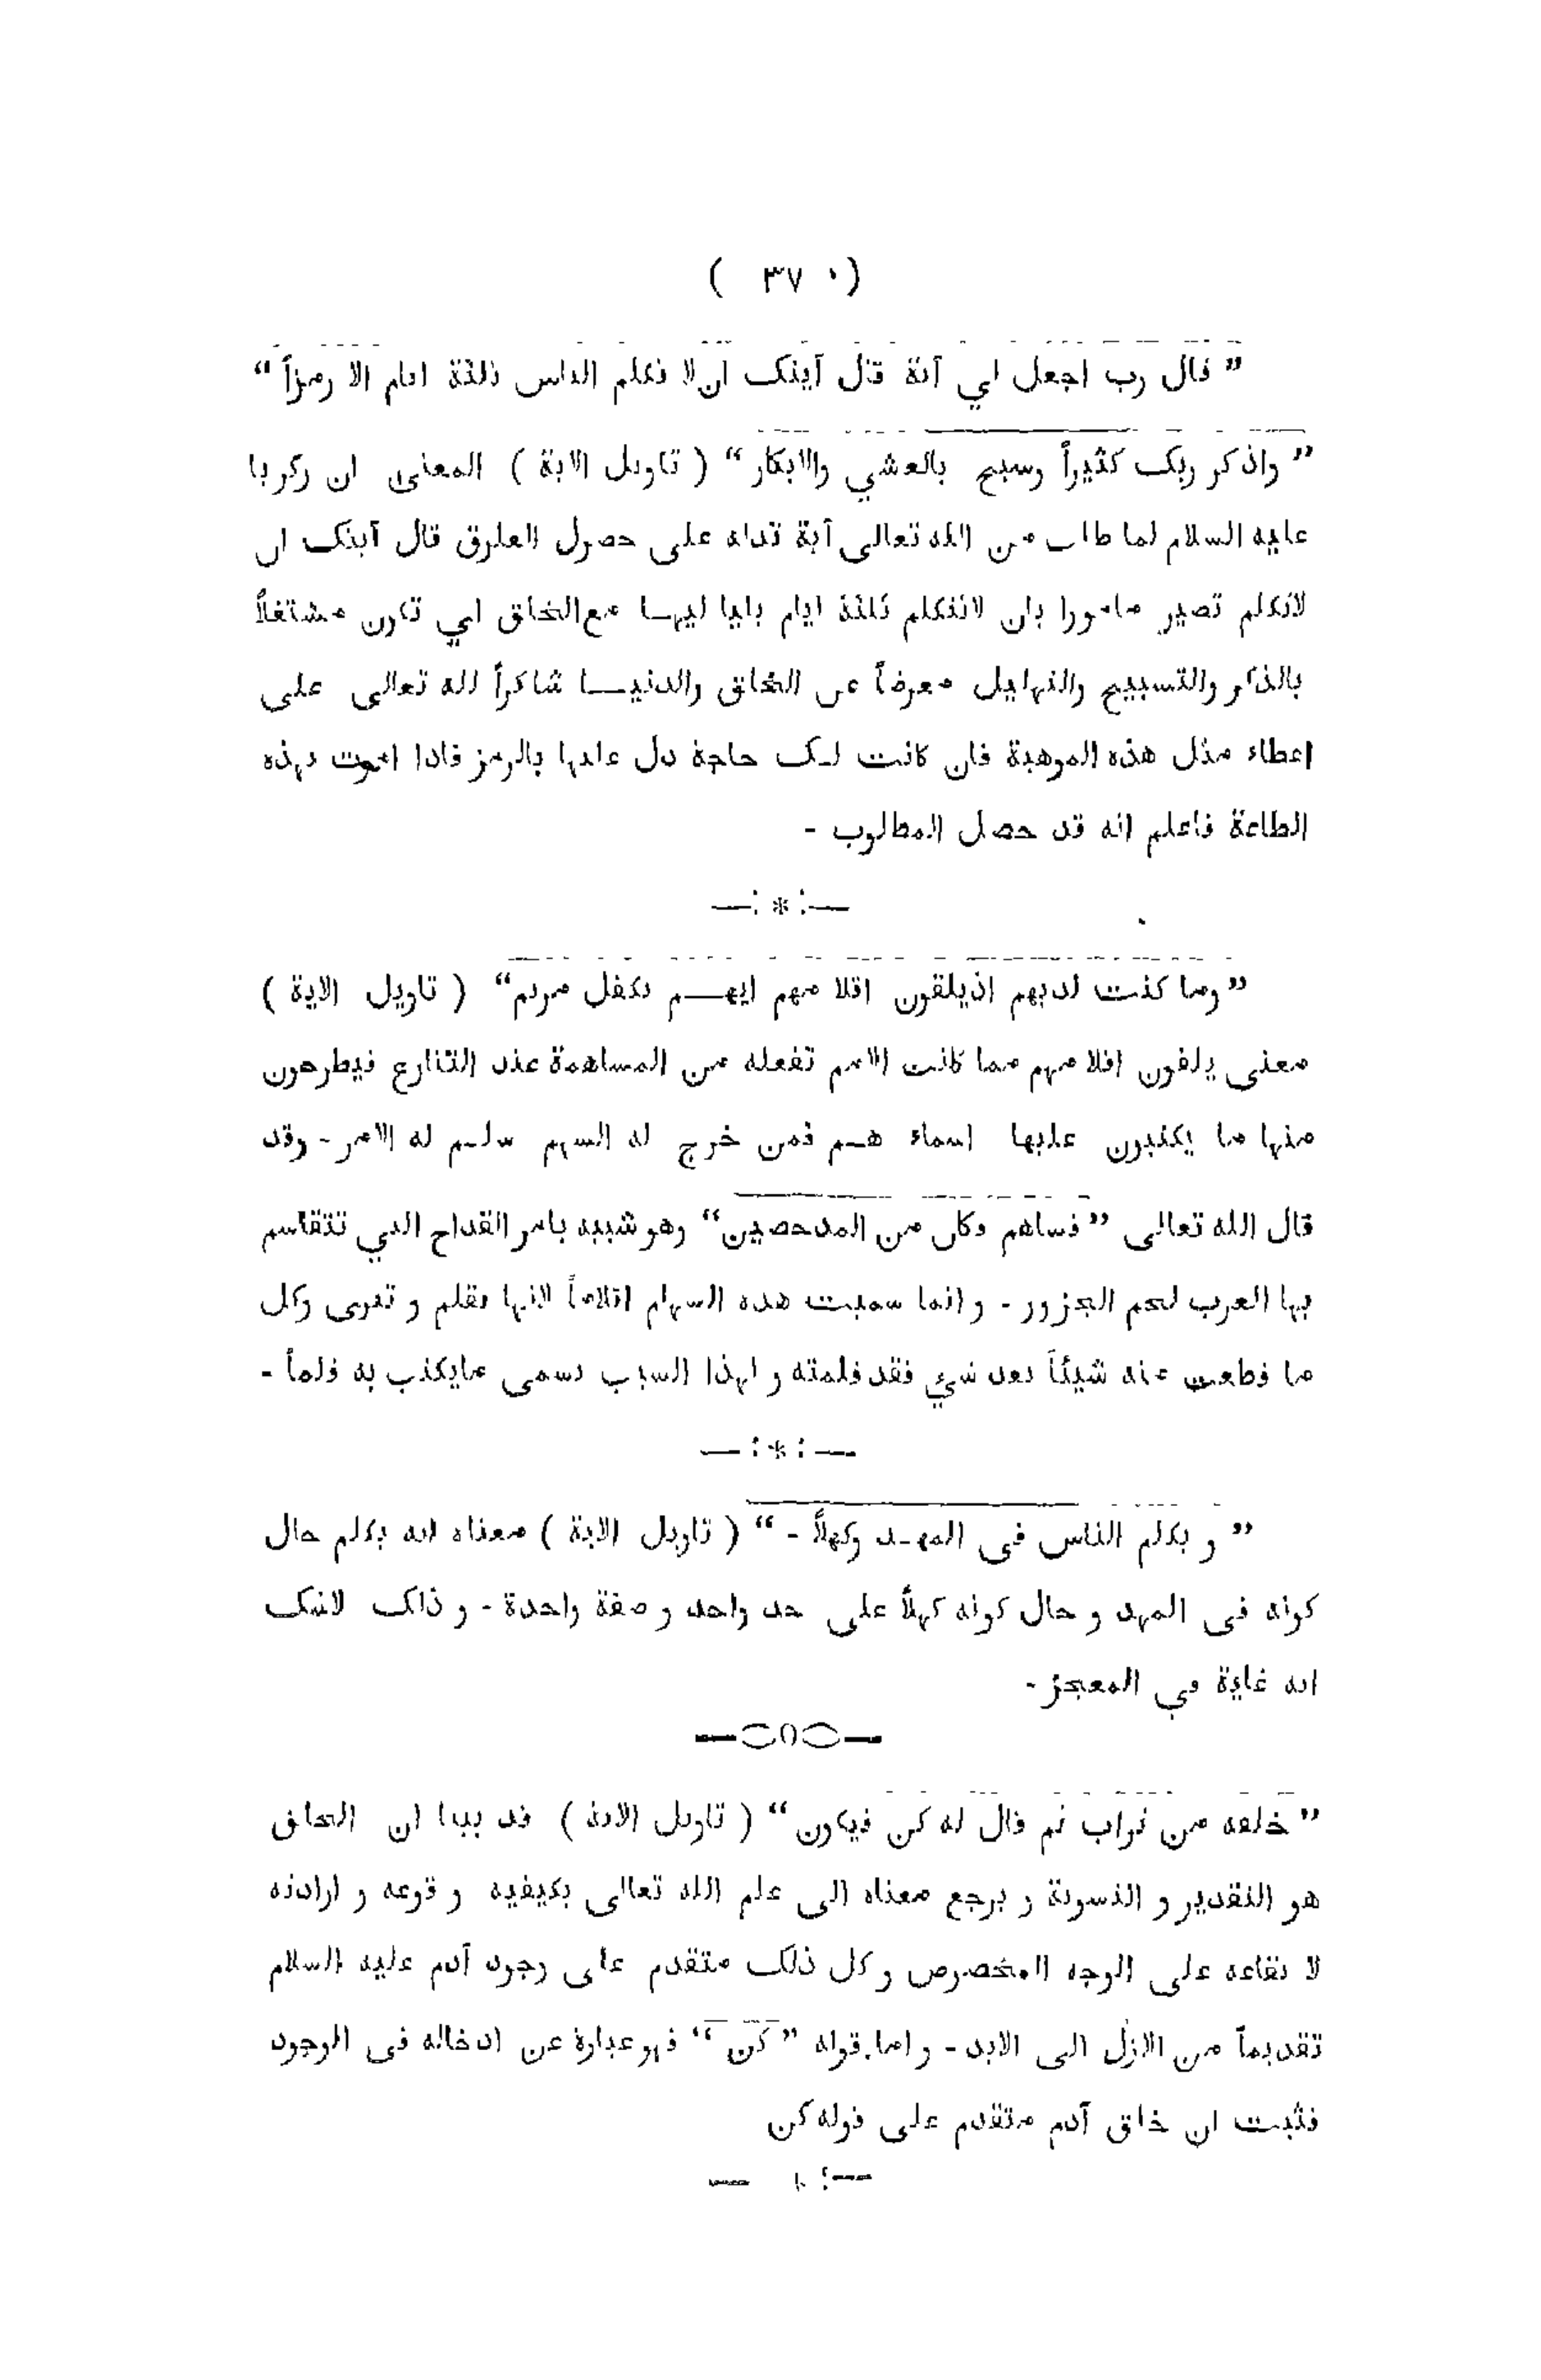 ( ٣٧٠ )
” قال رب اجعل لي آية قال آيتک ان لا تکلم الناس ثلثة ايام الا رمزاً “
” واذکر ربک کثيراً وسبح بالعشي والابکار “ ( تاويل الاية ) المعنى ان زکريا
عليه السلام لما طلب من الله تعالى آية تدله على حصول العلوق قال آيتک ان
لاتکلم تصير مامورا بان لاتتکلم ثلثة ايام بلياليهـا مع الخلق اي تکون مشتغلاً
بالذکر والتسبيح والتهليل معرضاً عن الخلق والدنيـا شاکراً لله تعالى على
اعطاء مثل هذه الموهبة فان کانت لک حاجة دل عليها بالرمز فاذا امرت بهذه
الطاعة فاعلم انه قد حصل المطلوب -
—:*:—
” وما کنت لديهم اذيلقون اقلا مهم ايهـم يکفل مريم “ ( تاويل الاية )
معنى يلقون اقلا مهم مما کانت الامم تفعله من المساهمة عند التنازع فيطرحون
منها ما يکتبون عليها اسماء هـم فمن خرج له السهم سلـم له الامر - وقد
قال الله تعالى ” فساهم فکان من المدحضين “ وهو شبيه بامر القداح التي تتقاسم
بها العرب لحم الجزور - و انما سميت هذه السهام اقلاماً لانها تقلم و تبرى وکل
ما قطعت منه شيئاً بعد شيء فقد قلمته و لهذا السبب يسمى مايکتب به قلماً -
—:*:—
” و يکلم الناس فى المهـد وکهلاً - “ ( تاويل الاية ) معناه انه يکلم حال
کونه فى المهد و حال کونه کهلاً على حد واحد و صفة واحدة - و ذلک لاشک
انه غاية في المعجز -
” خلقه من تراب ثم قال له کن فيکون “ ( تاويل الاية ) قد بينا ان الخلق
هو التقدير و التسوية و يرجع معناه الى علم الله تعالى بکيفيه و قوعه و ارادته
لا يقاعه على الوجه المخصوص و کل ذلک متقدم على وجود آدم عليه السلام
تقديماً من الازل الى الابد - و اما قوله ” کن “ فهو عبارة عن ادخاله فى الوجود
فثبت ان خلق آدم متقدم على قوله کن